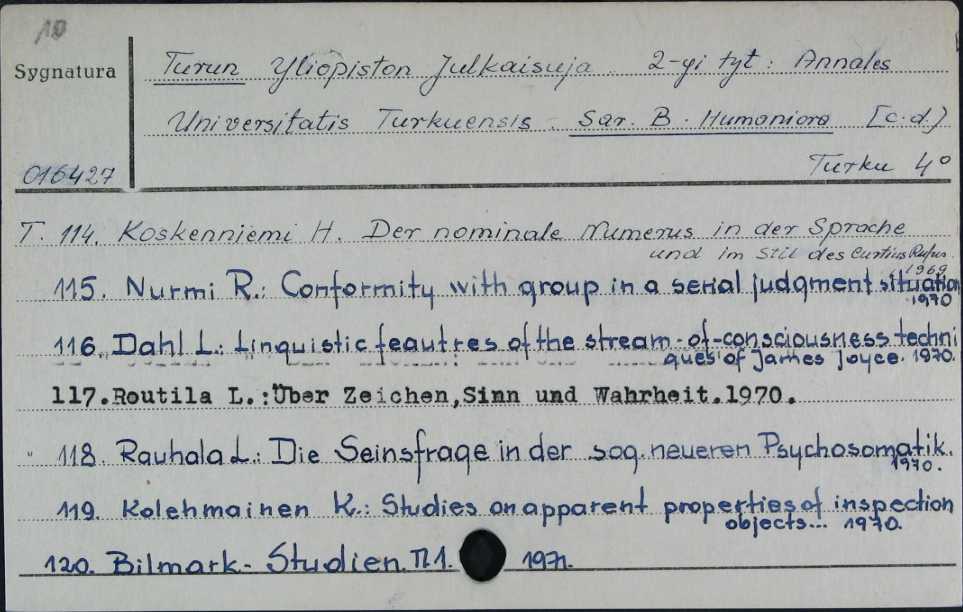 10
Sygnatura
Turun Yliopiston Julkaisuja. 2-gi tyt: Annales
Universitatis Turkuensis. Sar. B. Humaniora [c.d.)
016427
Turku 4°
T. 114. Koskenniemi H. Der nominale Numerus in der Sprache
und im Stil des Curtius Rufus.
1969
115. Nurmi R.: Conformity with group in a serial judgment situation
1970
116. Dahl L.: Linguistic feautres of the stream-of-consciousness techni
ques of James Joyce. 1970.
117. Routila L.: Über Zeichen, Sinn und Wahrheit. 1970.
" 118. Rauhala L.: Die Seinsfrage in der sog. neueren Psychosomatik.
1970.
119. Kolehmainen K.: Studies on apparent properties of inspection
objects... 1970.
120. Bilmark-Studien. Π1. 1971.